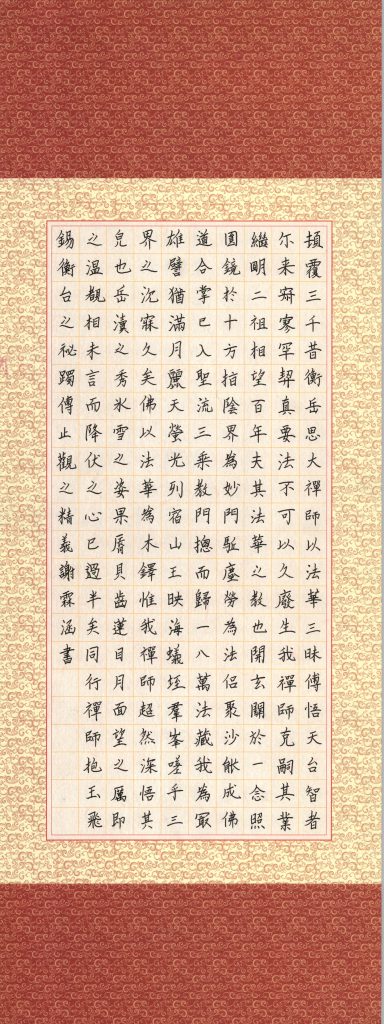 頂覆三千昔衡岳思大禪師以法華三昧傳悟天台智者
尔来寂寥罕契真要法不可以久廢生我禪師克嗣其業
繼明二祖相望百年夫其法華之教也開玄關於一念照
圓鏡於十方指陰界為妙門駈塵勞為法侶聚沙能成佛
道合掌已入聖流三乗教門揔而歸一八萬法藏我為冣
雄譬猶滿月麗天螢光列宿山王映海蟻垤羣峯嗟乎三
界之沉寐久矣佛以法華為木鐸惟我禪師超然深悟其
皃也岳瀆之秀氷雪之姿果脣貝齒蓮目月面望之厲即
之溫覩相未言而降伏之心已過半矣同行禪師抱玉飛
錫衡台之祕躅傳止觀之精義謝霖涵書